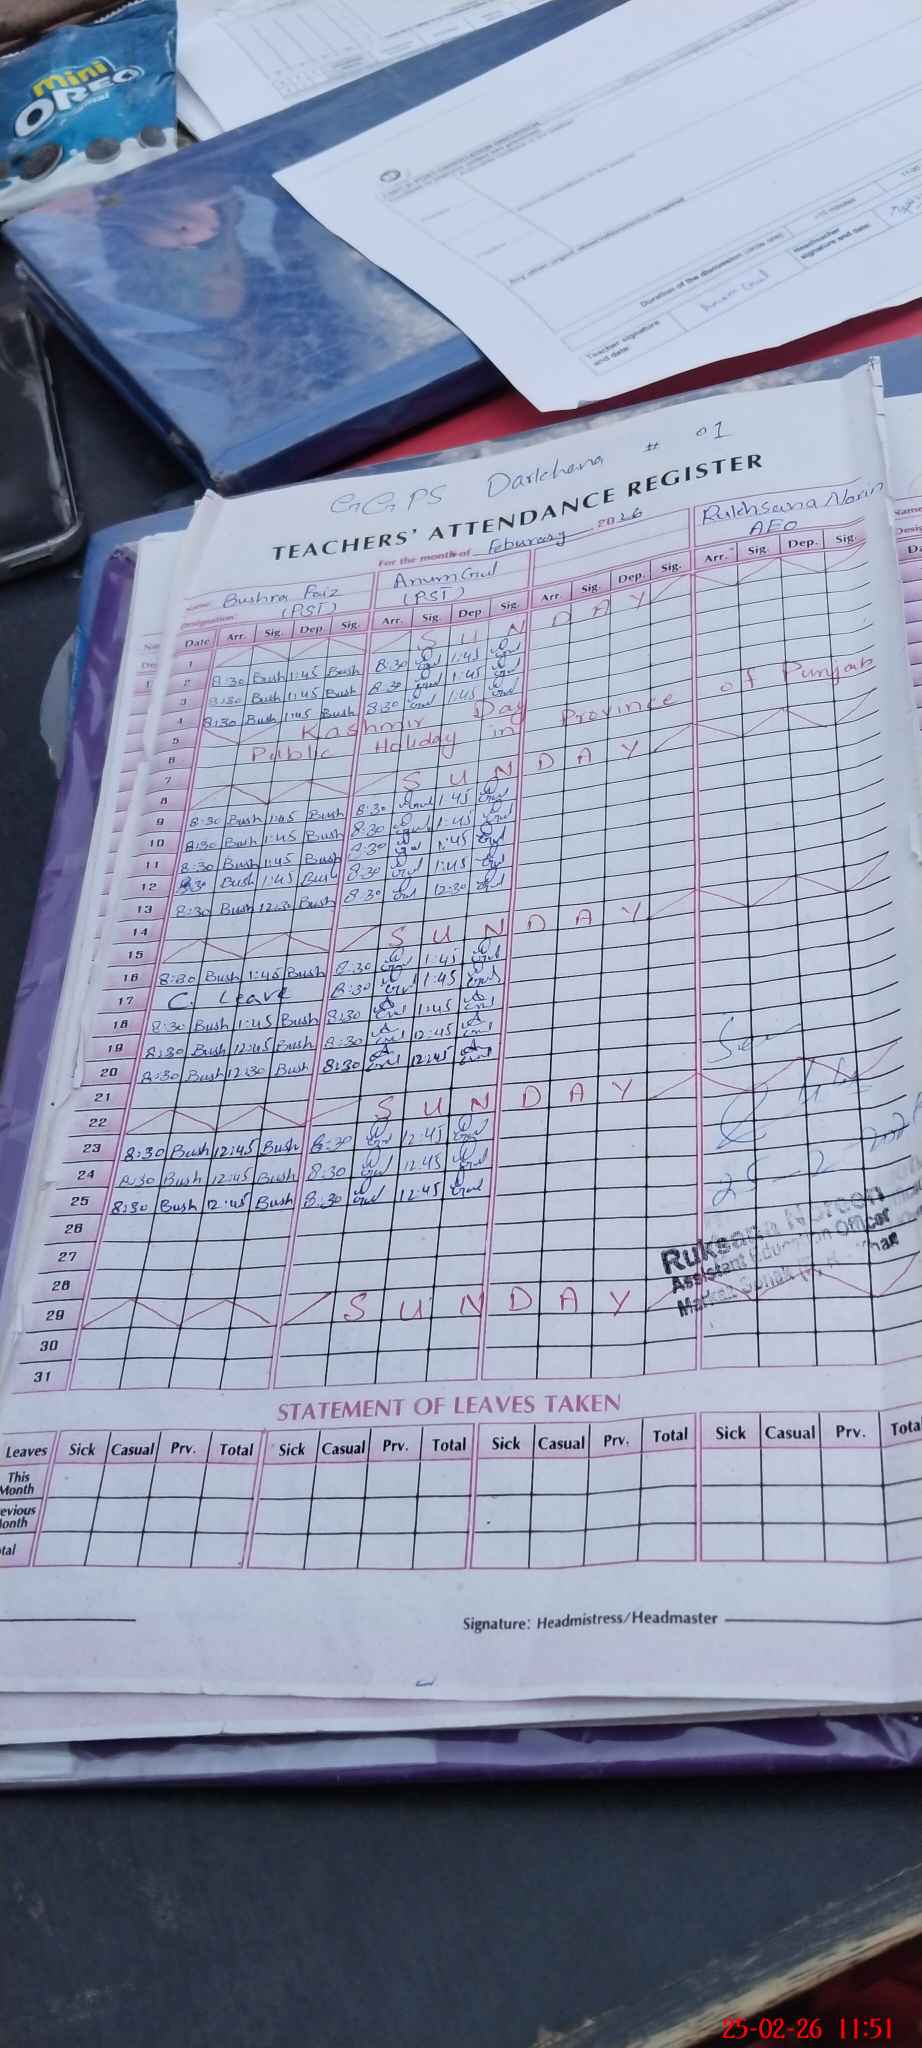 mini
OREO
Any other urgent
Duration of the discussion
Headteacher
signature and date:
Teacher signature
and date:
Anum Gul
GGPS Darkhana # 01
TEACHERS' ATTENDANCE REGISTER
For the month of Feburary 2026
Name: Bushra Faiz Anum Gul Rukhsana Norin
Designation (PST) (PST) AEO
Date Arr. Sig. Dep. Sig. Arr. Sig. Dep. Sig. Arr. Sig. Dep. Sig. Arr. Sig. Dep. Sig.
1 SUNDAY
2 8:30 Bush 1:45 Bush 8:30 Gul 1:45 Gul
3 8:30 Bush 1:45 Bush 8:30 Gul 1:45 Gul
4 8:30 Bush 1:45 Bush 8:30 Gul 1:45 Gul
5 Kashmir Day
6 Public Holiday in Province of Punjab
7
8 SUNDAY
9 8:30 Bush 1:45 Bush 8:30 Gul 1:45 Gul
10 8:30 Bush 1:45 Bush 8:30 Gul 1:45 Gul
11 8:30 Bush 1:45 Bush 8:30 Gul 1:45 Gul
12 8:30 Bush 1:45 Bush 8:30 Gul 1:45 Gul
13 8:30 Bush 12:30 Bush 8:30 Gul 12:30 Gul
14
15 SUNDAY
16 8:30 Bush 1:45 Bush 8:30 Gul 1:45 Gul
17 C. Leave 8:30 Gul 1:45 Gul
18 8:30 Bush 1:45 Bush 8:30 Gul 1:45 Gul
19 8:30 Bush 12:45 Bush 8:30 Gul 12:45 Gul
20 8:30 Bush 12:30 Bush 8:30 Gul 12:45 Gul
21
22 SUNDAY
23 8:30 Bush 12:45 Bush 8:30 Gul 12:45 Gul
24 8:30 Bush 12:45 Bush 8:30 Gul 12:45 Gul
25 8:30 Bush 12:45 Bush 8:30 Gul 12:45 Gul
25-2-2026
26
27
28
Ruksana Noreen
Assistant Education Officer
29 SUNDAY
30
31
STATEMENT OF LEAVES TAKEN
Leaves Sick Casual Prv. Total Sick Casual Prv. Total Sick Casual Prv. Total Sick Casual Prv. Total
This Month
evious onth
tal
Signature: Headmistress/Headmaster
25-02-26 11:51